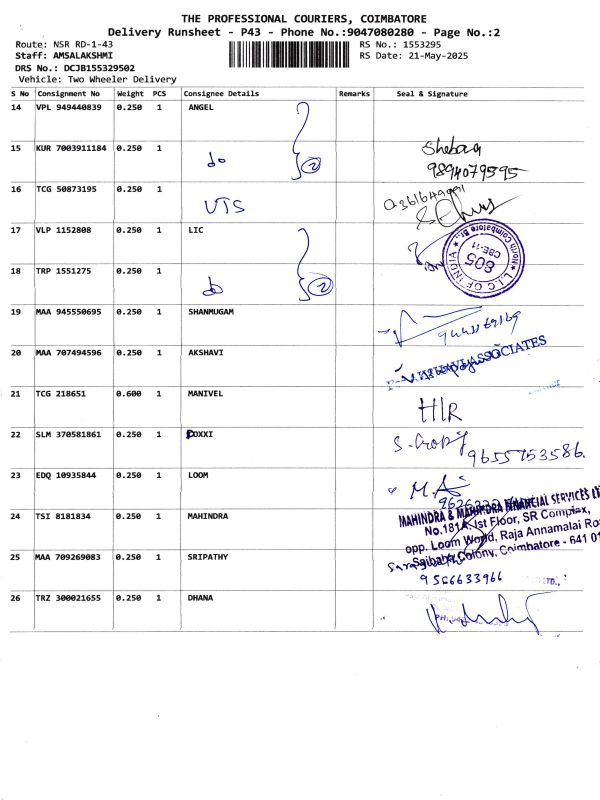 THE PROFESSIONAL COURIERS, COIMBATORE
Delivery Runsheet - P43 - Phone No.:9047080280 - Page No.:2
Route: NSR RD-1-43 RS No.: 1553295
Staff: AMSALAKSHMI RS Date: 21-May-2025
DRS No.: DCJB155329502
Vehicle: Two Wheeler Delivery
S No Consignment No Weight PCS Consignee Details Remarks Seal & Signature
14 VPL 949440839 0.250 1 ANGEL
15 KUR 7003911184 0.250 1 do 2 Sheba
9894079595
16 TCG 50873195 0.250 1 UTS
17 VLP 1152808 0.250 1 LIC
L.I.C. OF INDIA
805
CBE-11
18 TRP 1551275 0.250 1 do 2
19 MAA 945550695 0.250 1 SHANMUGAM
20 MAA 707494596 0.250 1 AKSHAVI
ASSOCIATES
21 TCG 218651 0.600 1 MANIVEL HIR
22 SLM 370581861 0.250 1 DOXXI S. Gopi
9655753586.
23 EDQ 10935844 0.250 1 LOOM
24 TSI 8181834 0.250 1 MAHINDRA
MAHINDRA & MAHINDRA FINANCIAL SERVICES
No.181A, Ist Floor, SR Complex,
opp. Loom World, Raja Annamalai
Saibaba Colony, Coimbatore - 641
25 MAA 709269083 0.250 1 SRIPATHY
9566633966
26 TRZ 300021655 0.250 1 DHANA